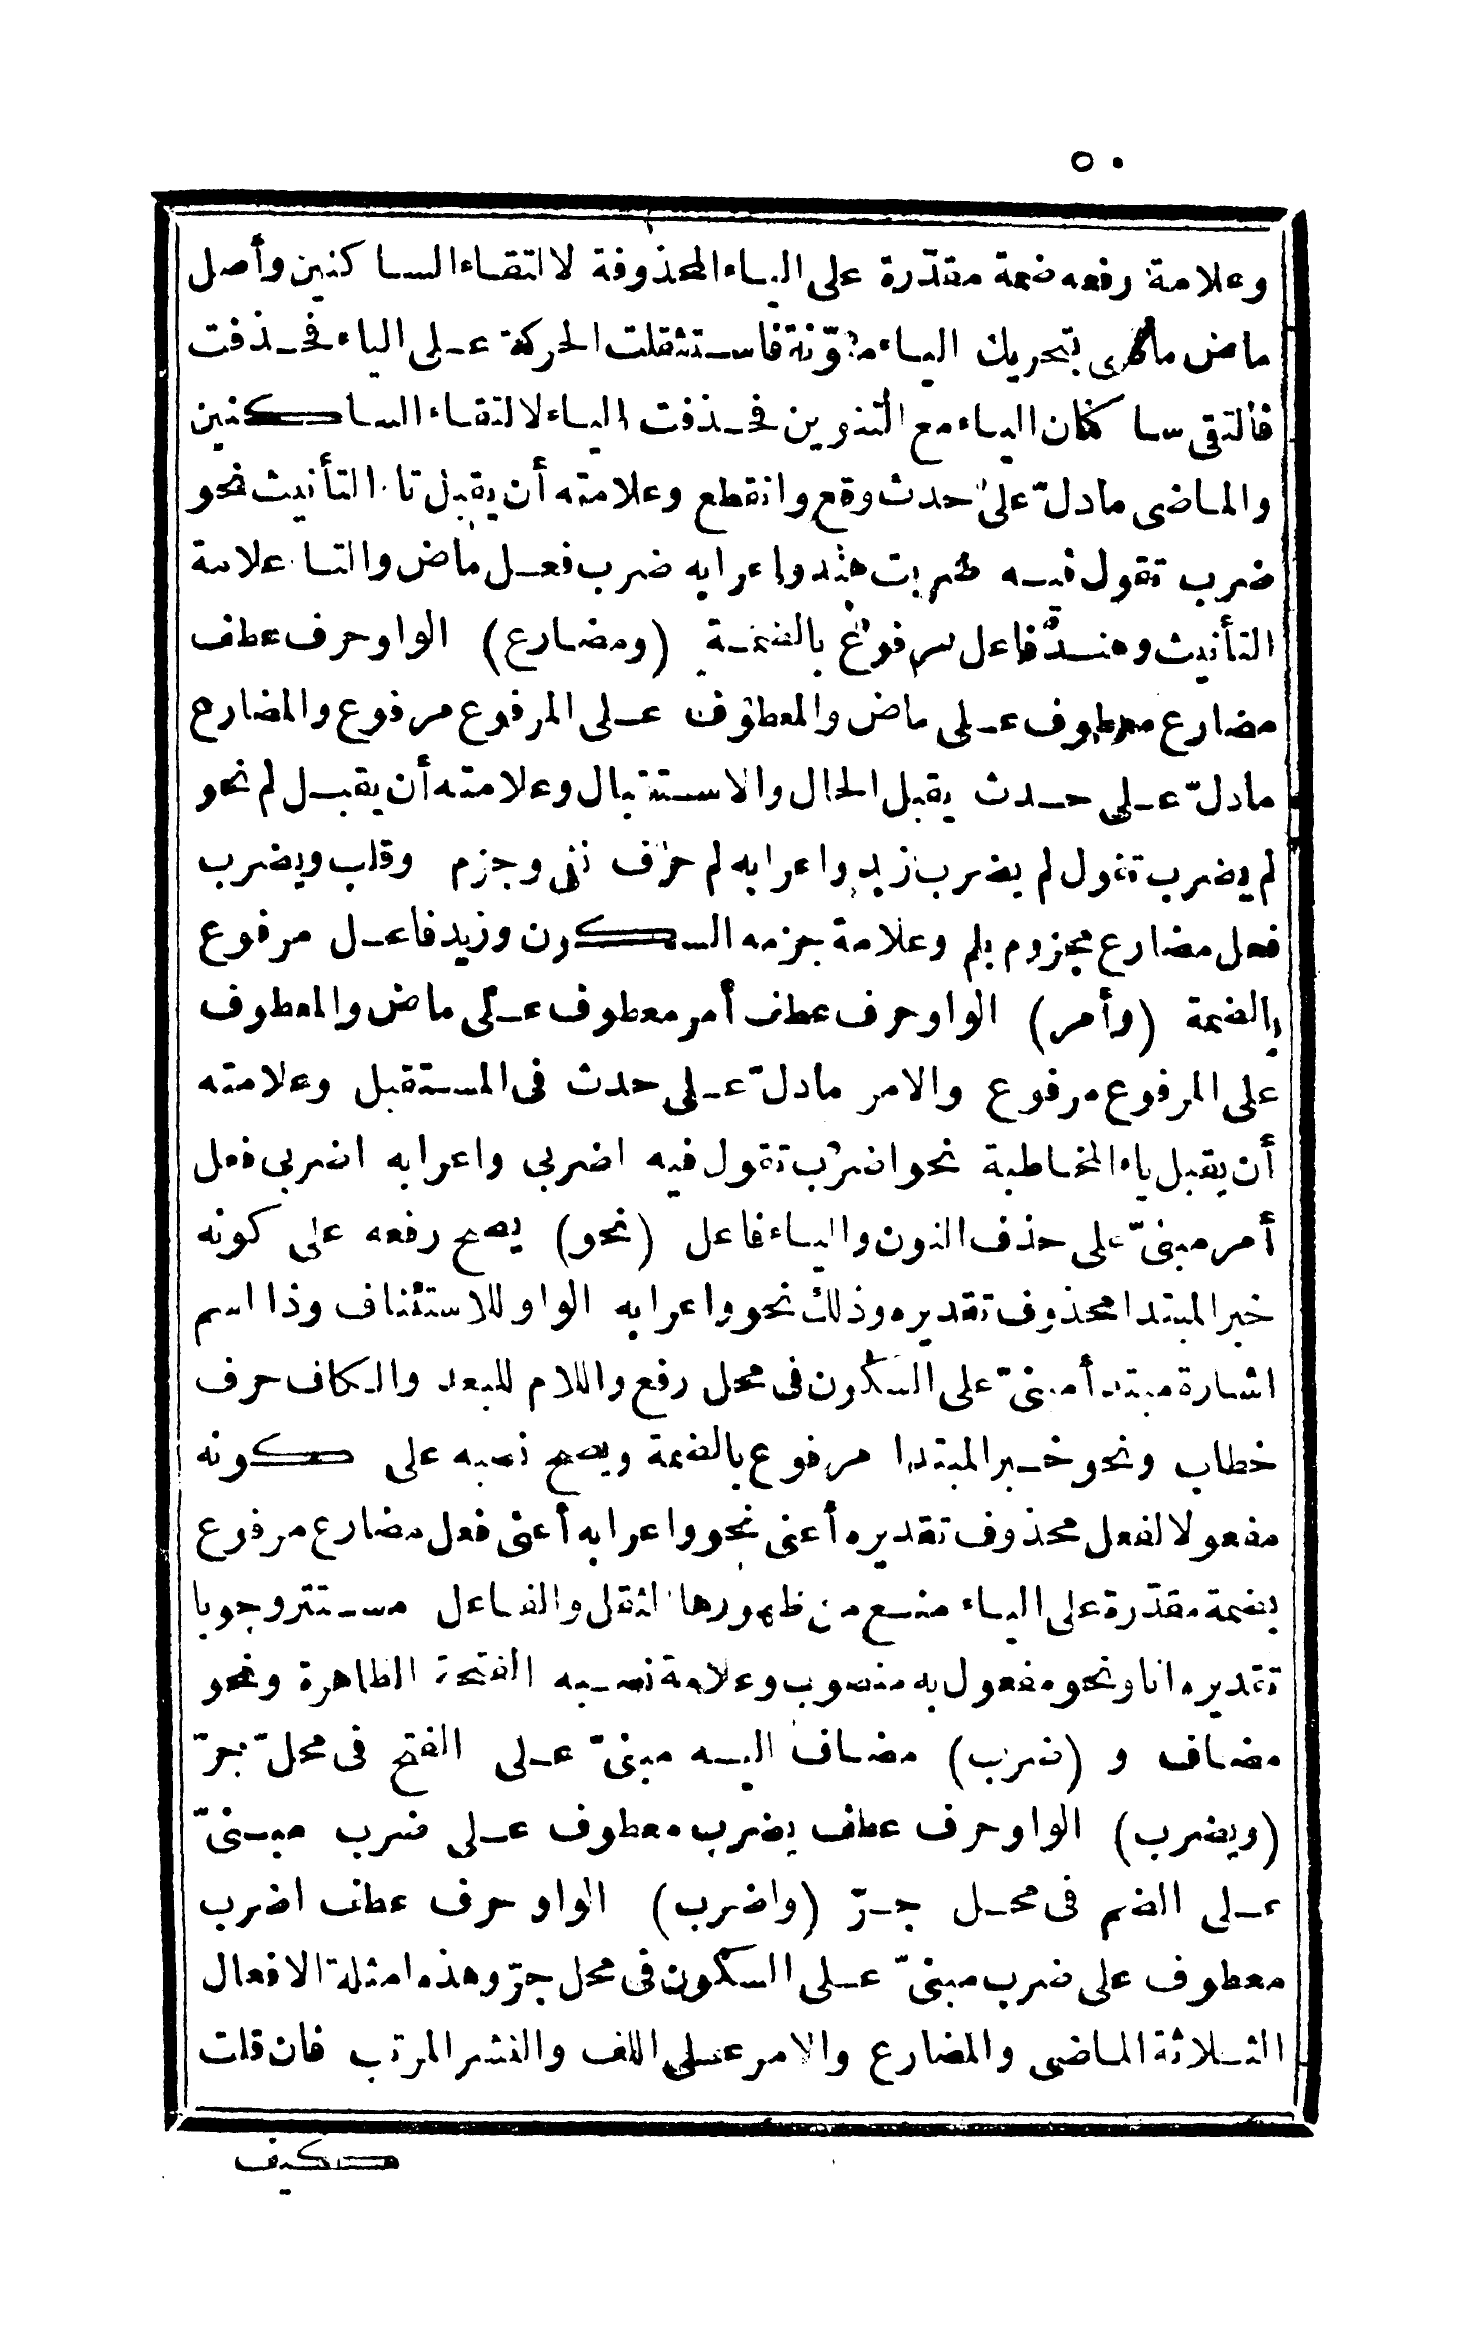 ٥٠
وعلامة رفعه ضمة مقدّرة على الياء المحذوفة لالتقاء الساكنين وأصل
ماض ماضى بتحريك الياء منوّنة فاستثقلت الحركة على الياء فحذفت
فالتقى ساكنان الياء مع التنوين فحذفت الياء لالتقاء الساكنين
والماضى مادلّ على حدث وقع وانقطع وعلامته أن يقبل تاء التأنيث نحو
ضرب تقول فيه ضربت هند واعرابه ضرب فعل ماض والتاء علامة
التأنيث وهندٌ فاعل مرفوع بالضمة (ومضارع) الواو حرف عطف
مضارع معطوف على ماض والمعطوف على المرفوع مرفوع والمضارع
مادلّ على حدث يقبل الحال والاستقبال وعلامته أن يقبل لم نحو
لم يضرب تقول لم يضرب زيد واعرابه لم حرف نفى وجزم وقلب ويضرب
فعل مضارع مجزوم بلم وعلامة جزمه السكون وزيد فاعل مرفوع
بالضمة (وأمر) الواو حرف عطف أمر معطوف على ماض والمعطوف
على المرفوع مرفوع والامر مادلّ على حدث فى المستقبل وعلامته
أن يقبل ياء المخاطبة نحو اضرب تقول فيه اضربى واعرابه اضربى فعل
أمر مبنىّ على حذف النون والياء فاعل (نحو) يصح رفعه على كونه
خبر المبتدا محذوف تقديره وذلك نحو واعرابه الواو للاستئناف وذا اسم
اشارة مبتدأ مبنىّ على السكون فى محل رفع واللام للبعد والكاف حرف
خطاب ونحو خبر المبتدا مرفوع بالضمة ويصح نصبه على كونه
مفعولا لفعل محذوف تقديره أعنى نحو واعرابه أعنى فعل مضارع مرفوع
بضمة مقدّرة على الياء منع من ظهورها الثقل والفاعل مستتر وجوبا
تقديره انا ونحو مفعول به منصوب وعلامة نصبه الفتحة الظاهرة ونحو
مضاف و (ضرب) مضاف اليه مبنىّ على الفتح فى محلّ جرّ
(ويضرب) الواو حرف عطف يضرب معطوف على ضرب مبنىّ
على الضم فى محل جرّ (واضرب) الواو حرف عطف اضرب
معطوف على ضرب مبنىّ على السكون فى محل جرّ وهذه امثلة الافعال
الثلاثة الماضى والمضارع والامر على اللف والنشر المرتب فان قلت
كيف